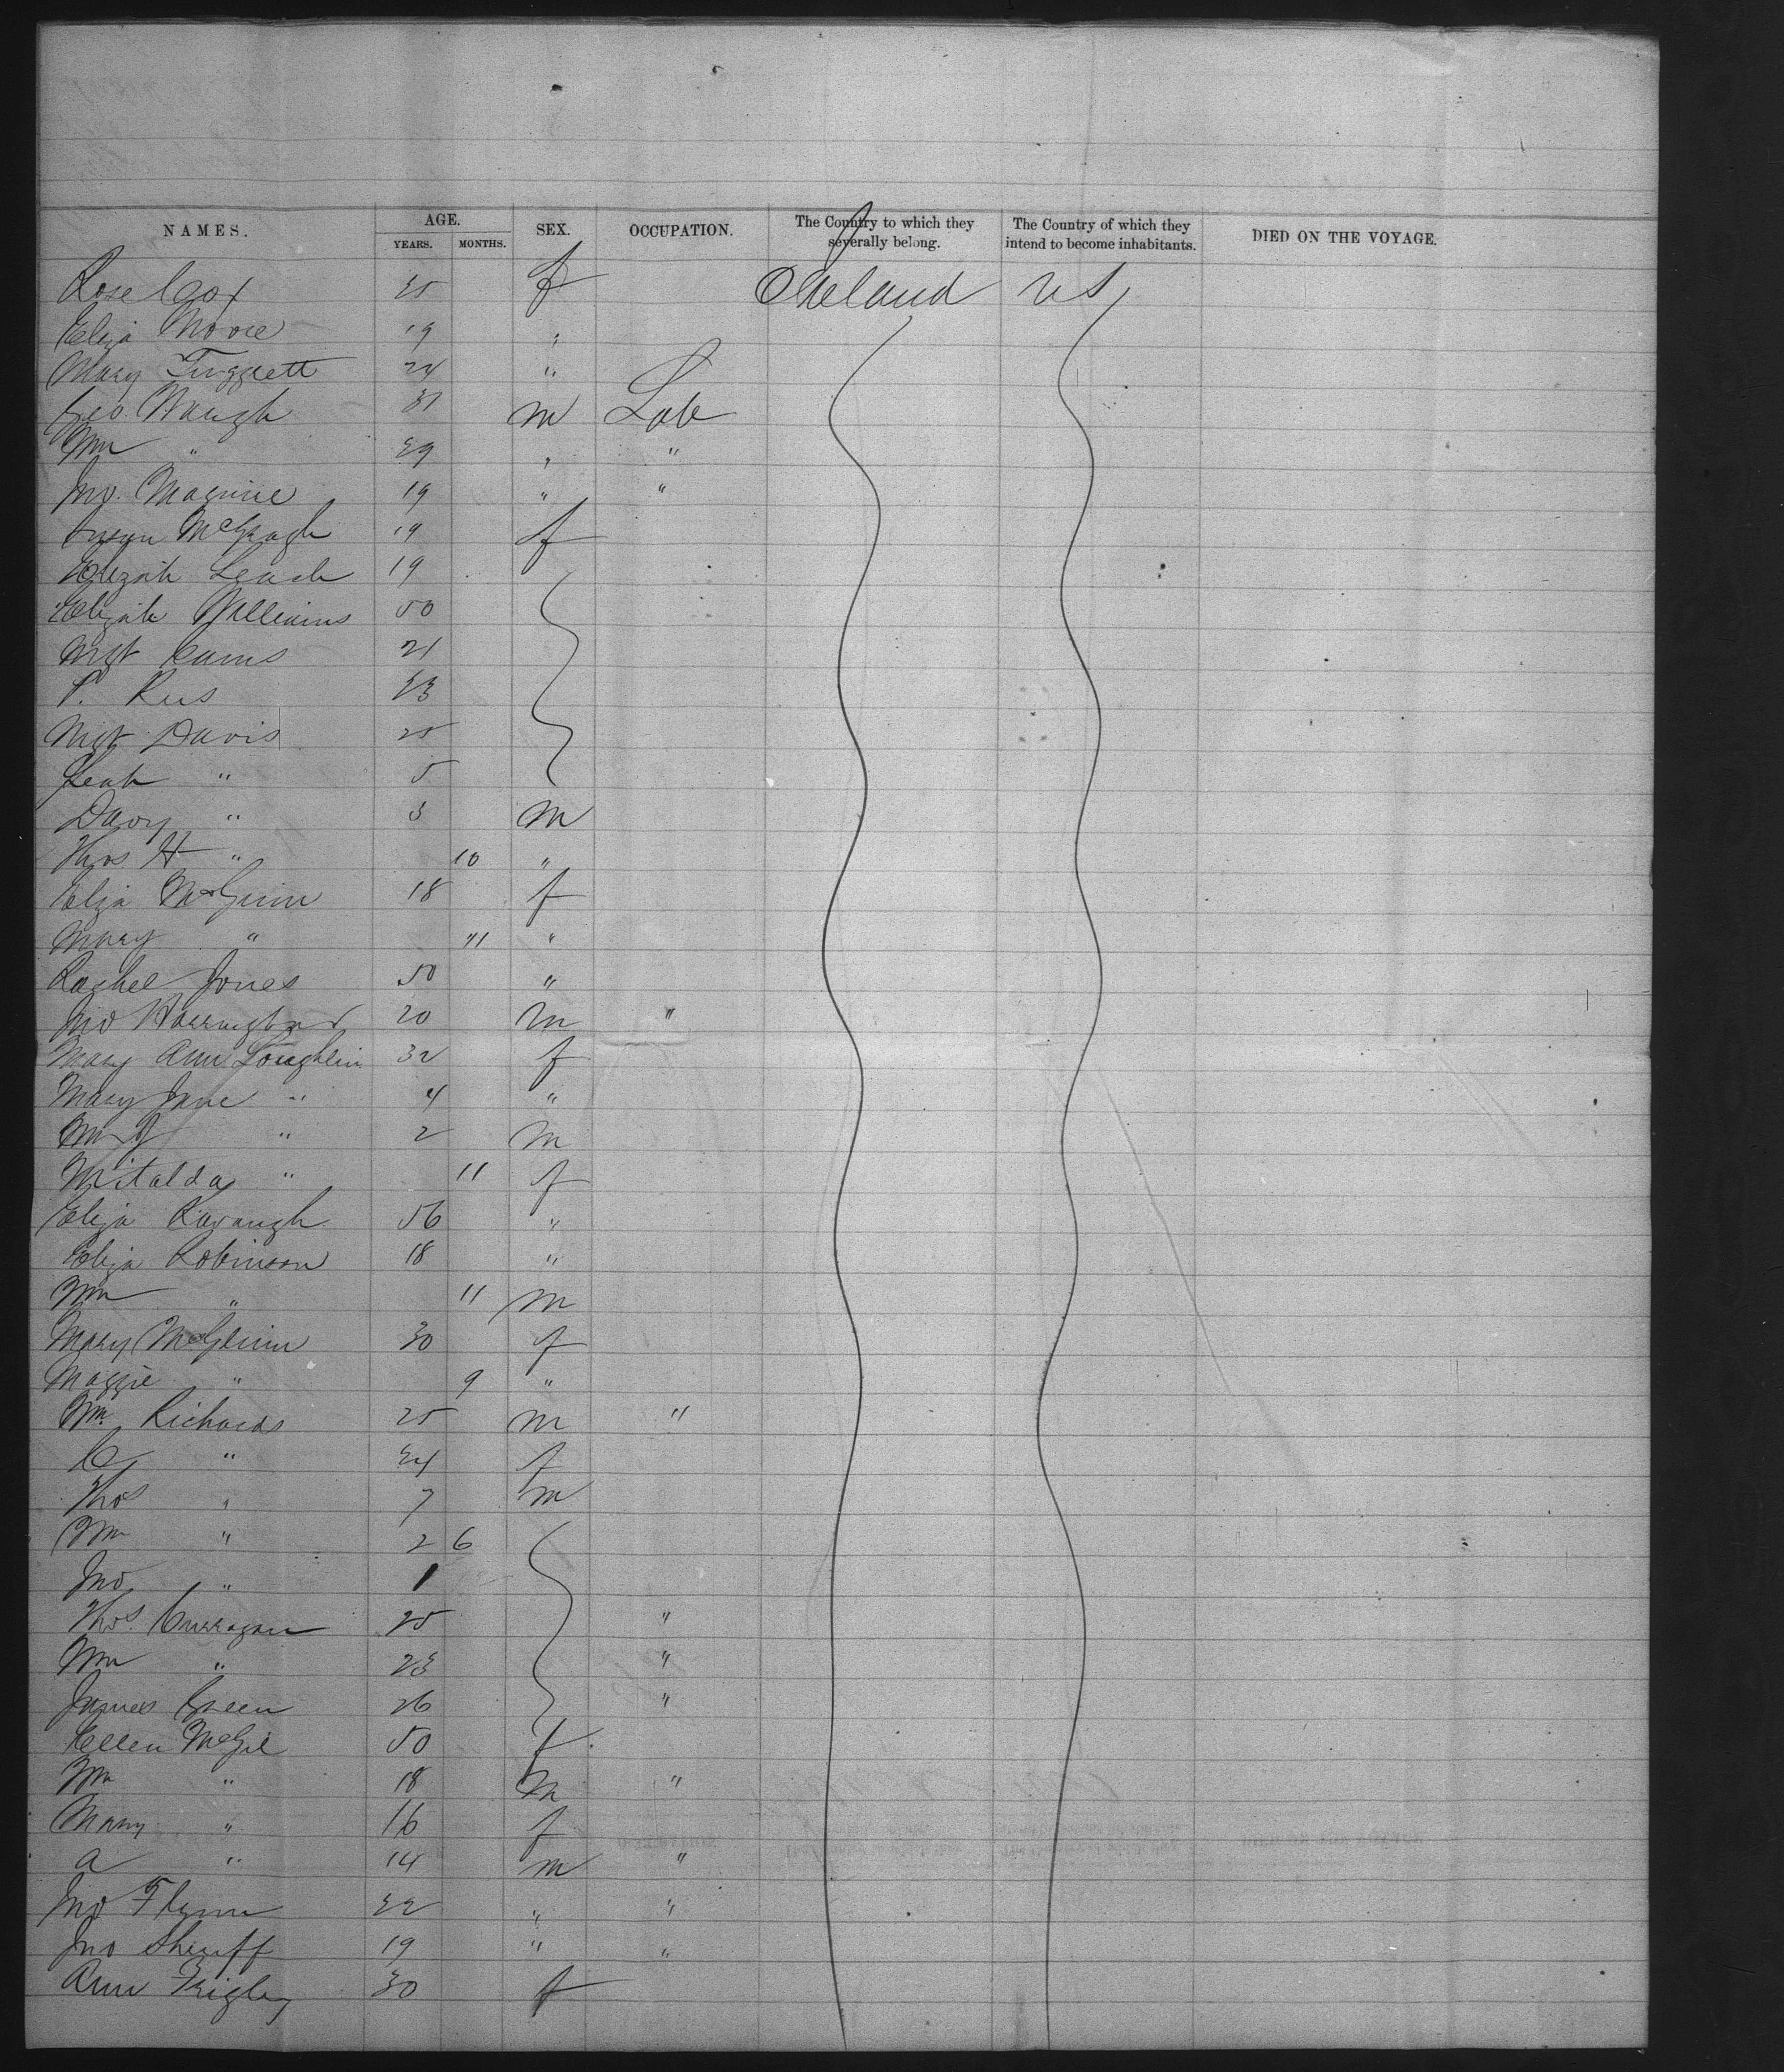 NAMES. AGE. YEARS. MONTHS. SEX. OCCUPATION. The Country to which they severally belong. The Country of which they intend to become inhabitants. DIED ON THE VOYAGE.
Rose Cox 25 f Ireland US
Eliza Moore 19 "
Mary 24 "
Geo. Waugh 31 m Lab
Wm " 29 " "
Jno. Maguire 19 " "
Susan 19 f
Elizath Leach 19
Elizath Williams 50
Mgt 21
P. Rees 23
Mgt Davis 25
Leah " 5
Davy " 3 m
Thos H " 10 "
Eliza McGinn 18 f
Mary " 11 "
Rachel Jones 50 "
Jno Harrington 20 m "
Mary Ann Loughlin 32 f
Mary Jane " 4 "
Wm J " 2 m
Mitalda " 11 f
Eliza Kavaugh 56 "
Eliza Robinson 18 "
Wm " 11 m
Mary McGlinn 30 f
Maggie " 9 "
Wm Richards 25 m "
C " 24 f
Thos " 7 m
Wm " 2 6
Jno " 1
Thos. Curragan 25 "
Wm " 23 "
James Green 26 "
Ellen McGil 50 f
Wm " 18 m "
Mary " 16 f
A " 14 m "
Jno Flynn 22 " "
Jno Sheriff 19 " "
Ann Frigley 30 f